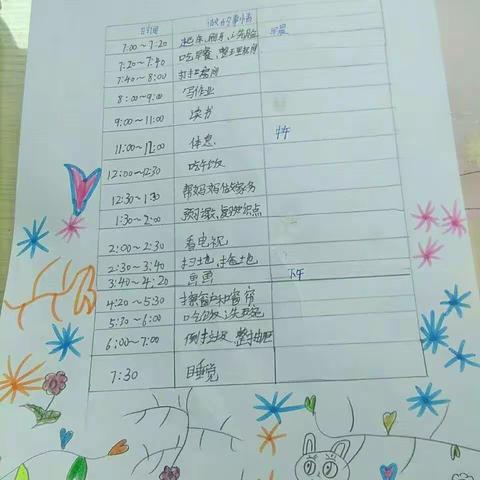 时间 做的事情
7:00～7:20 起床、刷牙、洗脸 早晨
7:20～7:40 吃早餐、整理
7:40～8:00 打扫房间
8:00～9:00 写作业
9:00～11:00 读书
11:00～12:00 休息 中午
12:00～12:30 吃午饭
12:30～1:30 帮妈妈做家务
1:30～2:00 预习课、复习知识点
2:00～2:30 看电视
2:30～3:40 扫地、拖地
3:40～4:20 画画 下午
4:20～5:30 擦窗户和窗帘
5:30～6:00 吃饭、洗碗
6:00～7:00 倒垃圾、整抽屉
7:30 睡觉